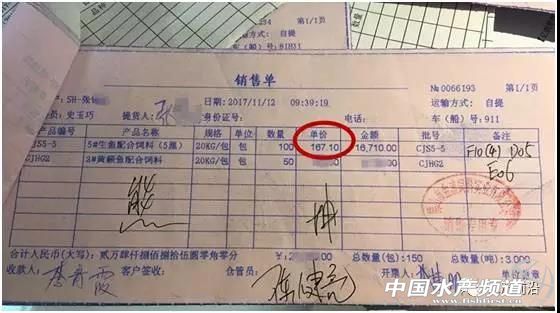 1/1页
方式：自提
(船)号：81H11
销售单
№0066193
第1/1页
SH-张
提货人：张
日期：2017/11/12 09:39:19
运输方式：自提
员：史玉巧
身份证号：
电话：
车（船）号：911
产品编号 产品名称 规格 单位 数量 单价 金额 批号 备注
CJS5-5 5#生鱼配合饲料（5厘） 20KG/包 包 100 167.10 16,710.00 CJS5-5 F10(4) D05
CJHG2 2#黄颡鱼配合饲料 20KG/包 包 50 CJHG2 E06
合计人民币(大写)：贰万肆仟捌佰捌拾伍圆零角零分 ¥:2 总数量(包)：150 总数量(吨)：3.000
收款人： 客户签收： 仓管员：陈健亮 开票人： 单位盖章
中国水产频道
www.fishfirst.cn